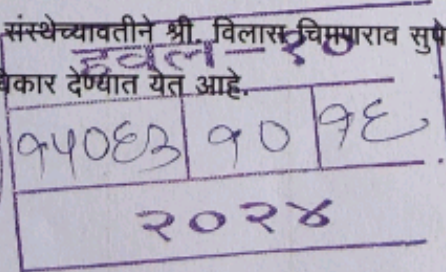 संस्थेच्यावतीने श्री. विलास चिमणराव सुपे
हवल - १०
वेकार देण्यात येत आहे.
१५०६३ १० १६
२०२४